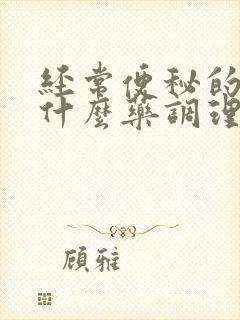 經常便秘的
什麼藥調理
顧雅